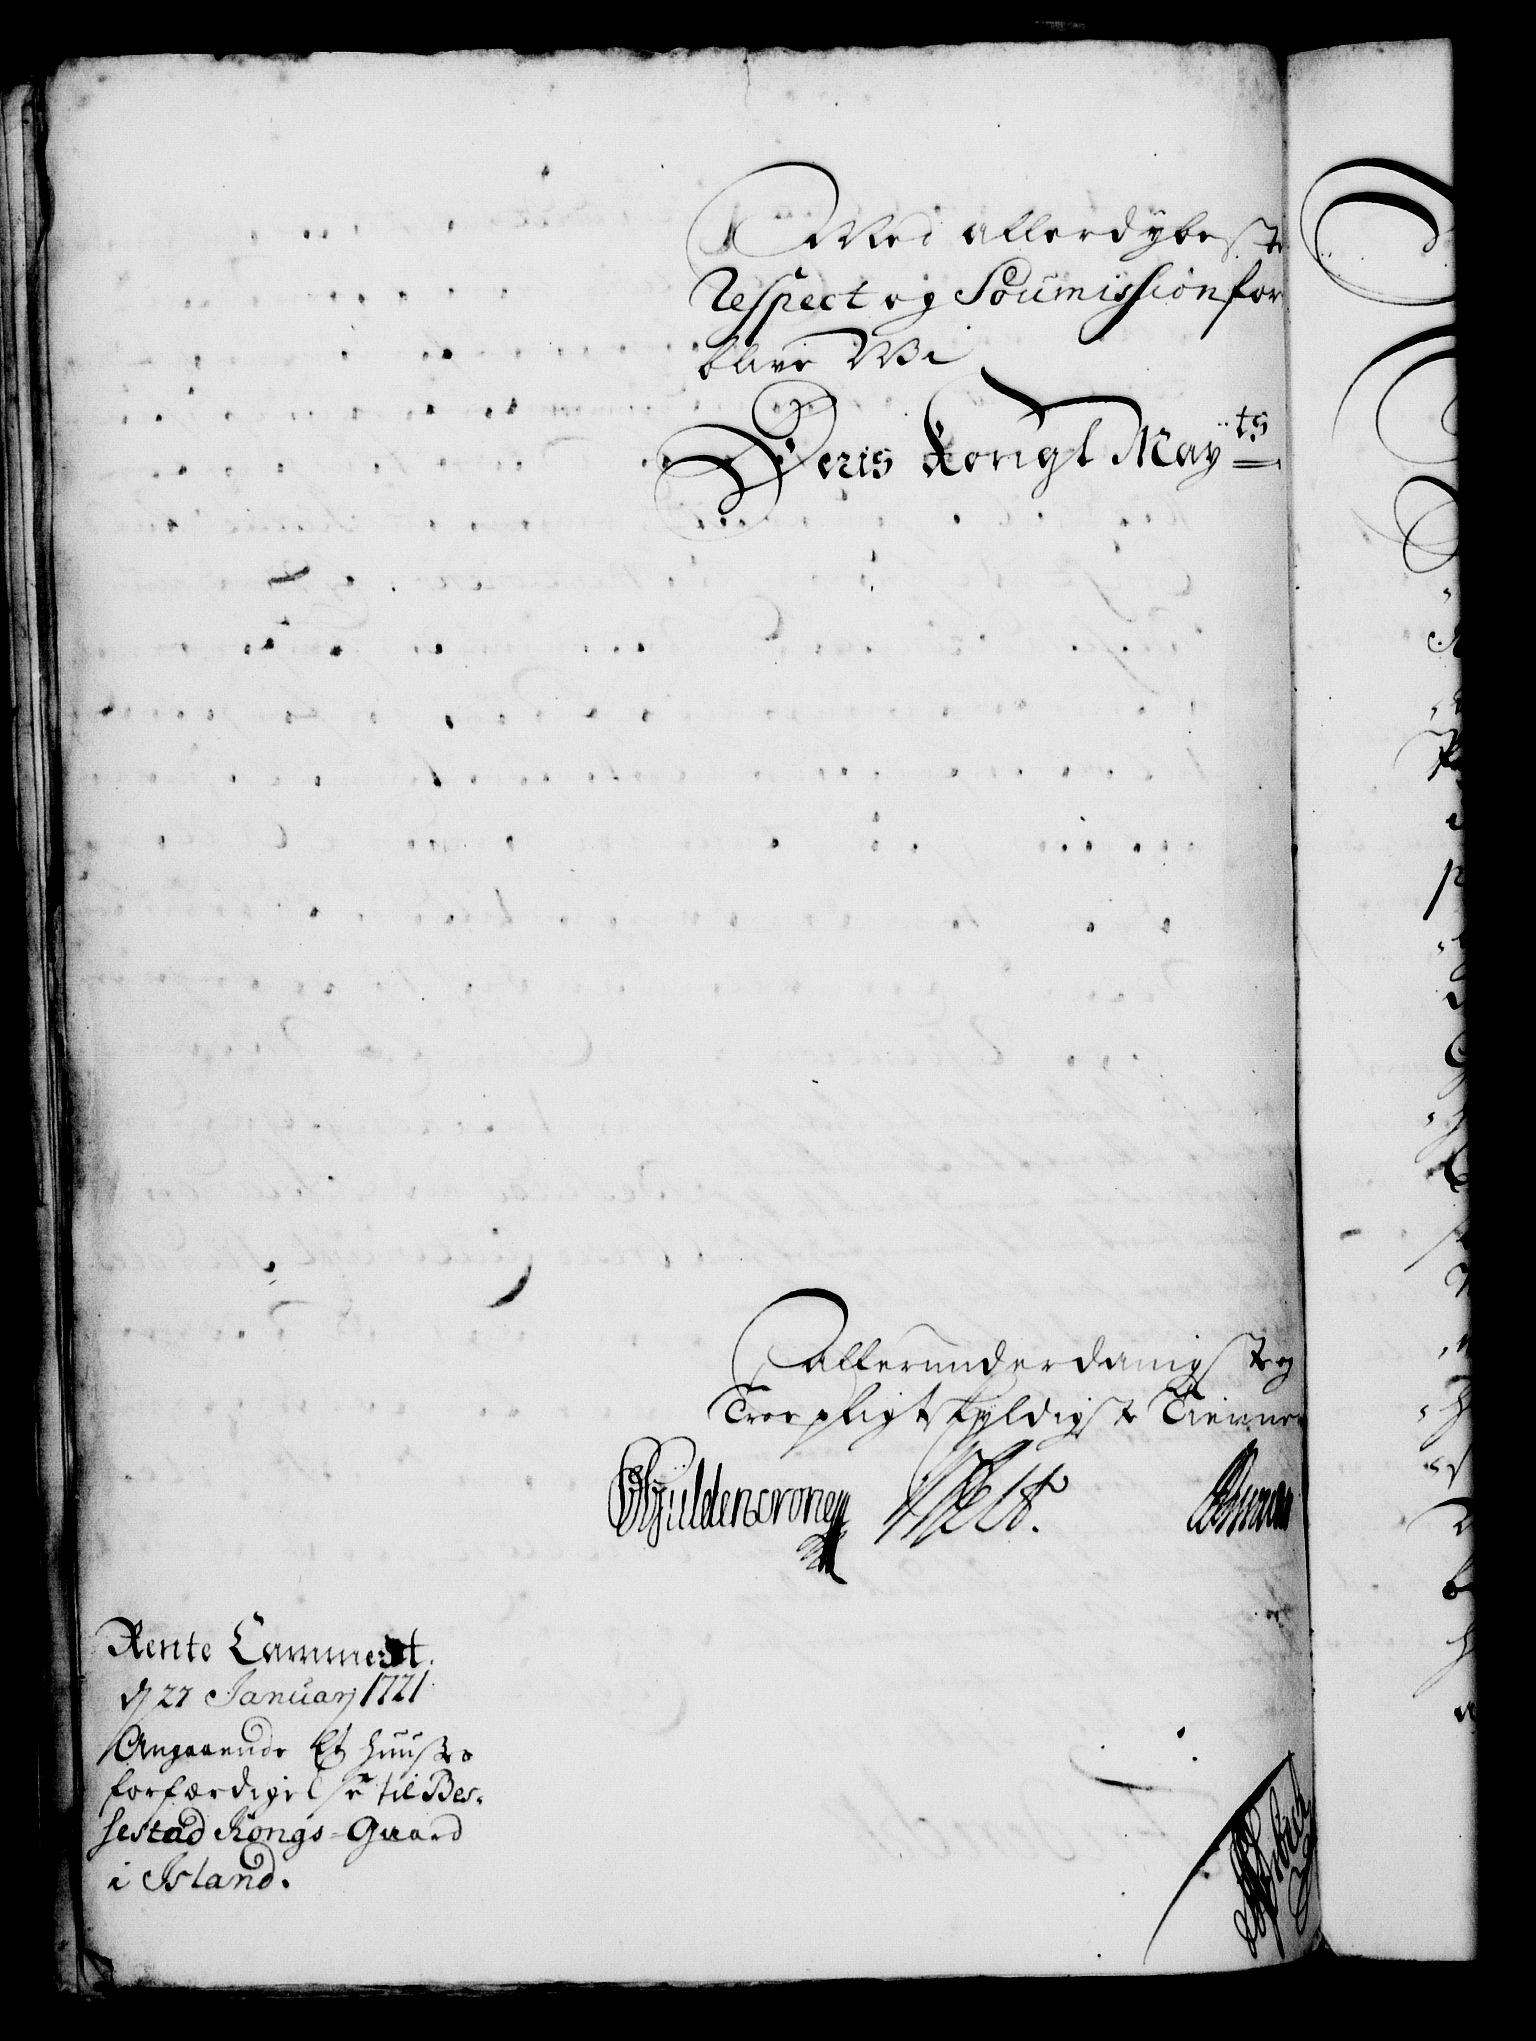 Med allerdÿbeste
Respect og Soumission for
blive Wi
Deris Kongl Maÿ:ts
allerunderdanigste og
Troepligtskyldigste Tienner
Gÿuldencrone
Rente Cammeret.
d 27 Januarj 1721
Angaaende Et Huuses
forfærdigelse til Bes-
sestad Kongs-Gaard
i Island.